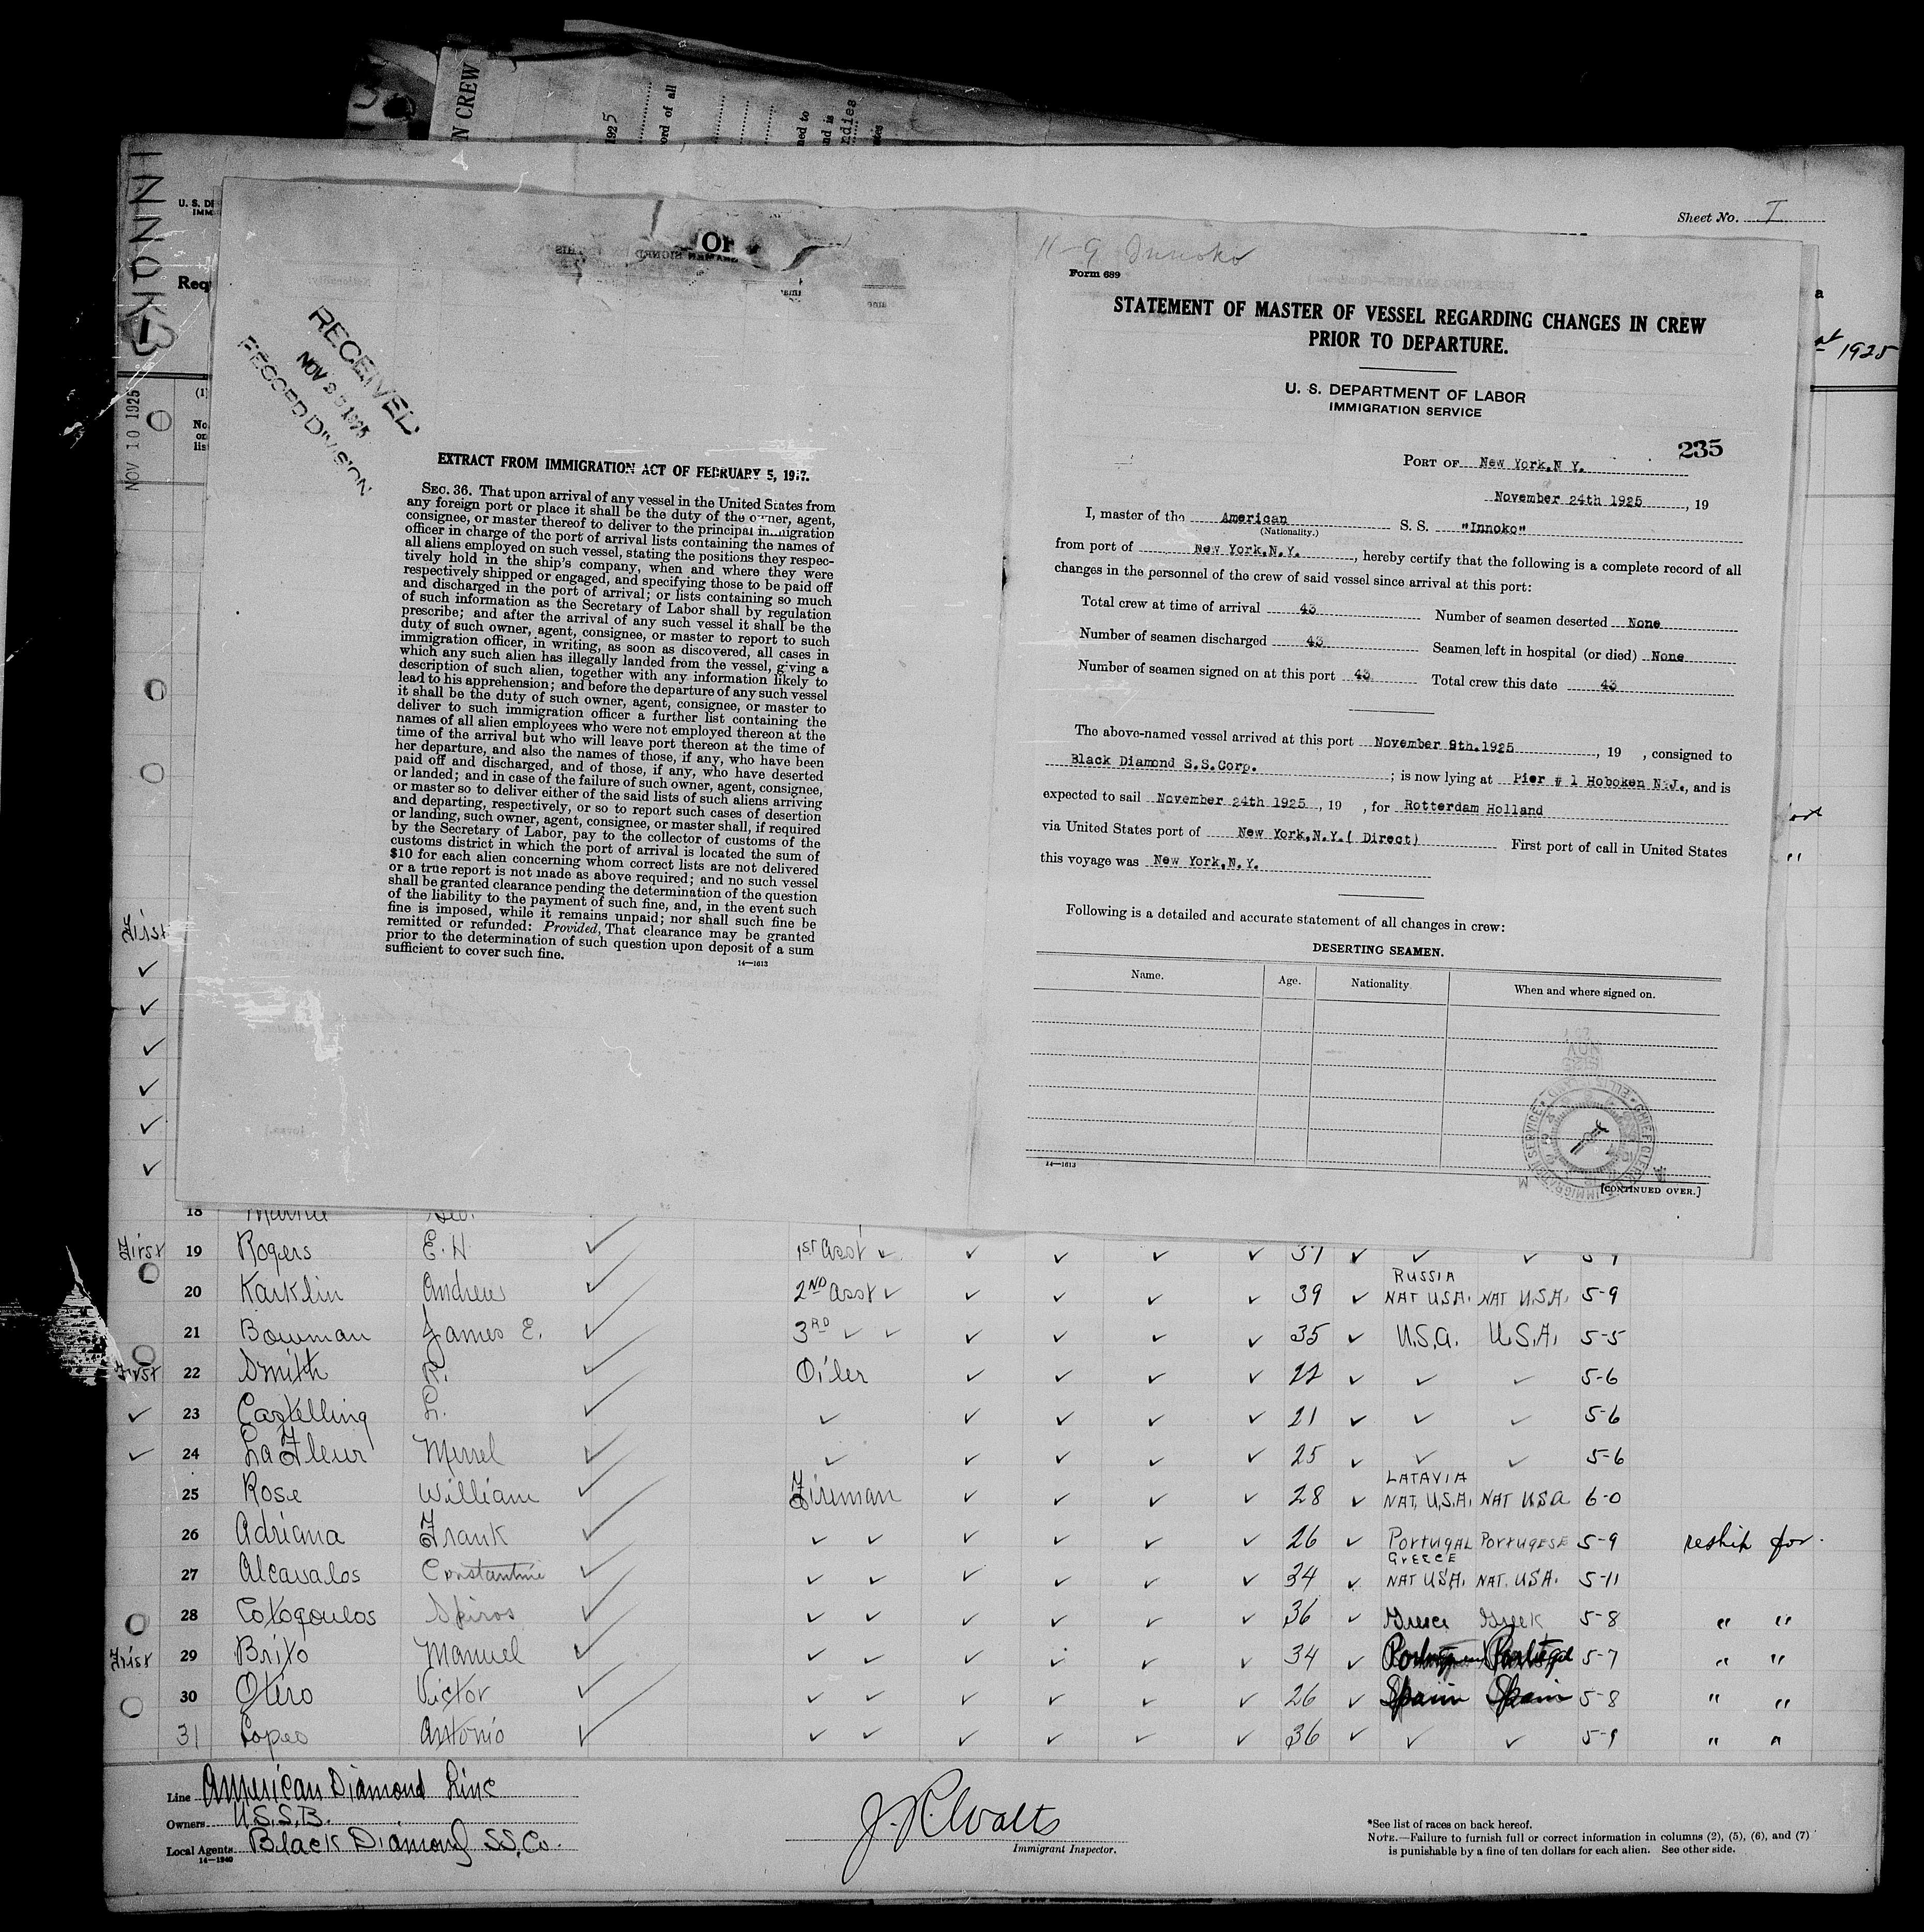 N CREW
1925
ord of all
ned to
nd is
ndies
ates
INNOKO
3
NOV 10 1925
U. S. DE
IMM
Req
(1)
No.
on
list
Sheet No. I
a
1925
Or
RECEIVED
NOV 1925
RECORD DIVISION
EXTRACT FROM IMMIGRATION ACT OF FEBRUARY 5, 1917.
SEC. 36. That upon arrival of any vessel in the United States from
any foreign port or place it shall be the duty of the owner, agent,
consignee, or master thereof to deliver to the principal immigration
officer in charge of the port of arrival lists containing the names of
all aliens employed on such vessel, stating the positions they respec-
tively hold in the ship's company, when and where they were
respectively shipped or engaged, and specifying those to be paid off
and discharged in the port of arrival; or lists containing so much
of such information as the Secretary of Labor shall by regulation
prescribe; and after the arrival of any such vessel it shall be the
duty of such owner, agent, consignee, or master to report to such
immigration officer, in writing, as soon as discovered, all cases in
which any such alien has illegally landed from the vessel, giving a
description of such alien, together with any information likely to
lead to his apprehension; and before the departure of any such vessel
it shall be the duty of such owner, agent, consignee, or master to
deliver to such immigration officer a further list containing the
names of all alien employees who were not employed thereon at the
time of the arrival but who will leave port thereon at the time of
her departure, and also the names of those, if any, who have been
paid off and discharged, and of those, if any, who have deserted
or landed; and in case of the failure of such owner, agent, consignee,
or master so to deliver either of the said lists of such aliens arriving
and departing, respectively, or so to report such cases of desertion
or landing, such owner, agent, consignee, or master shall, if required
by the Secretary of Labor, pay to the collector of customs of the
customs district in which the port of arrival is located the sum of
$10 for each alien concerning whom correct lists are not delivered
or a true report is not made as above required; and no such vessel
shall be granted clearance pending the determination of the question
of the liability to the payment of such fine, and, in the event such
fine is imposed, while it remains unpaid; nor shall such fine be
remitted or refunded: Provided, That clearance may be granted
prior to the determination of such question upon deposit of a sum
sufficient to cover such fine.
14—1613
11-9 Innoko
Form 689
STATEMENT OF MASTER OF VESSEL REGARDING CHANGES IN CREW
PRIOR TO DEPARTURE.
U. S. DEPARTMENT OF LABOR
IMMIGRATION SERVICE
235
PORT OF New York,N Y.
November 24th 1925, 19
I, master of the American S. S. "Innoko"
(Nationality.)
from port of New York,N.Y., hereby certify that the following is a complete record of all
changes in the personnel of the crew of said vessel since arrival at this port:
Total crew at time of arrival 43 Number of seamen deserted None
Number of seamen discharged 43 Seamen left in hospital (or died) None
Number of seamen signed on at this port 43 Total crew this date 43
The above-named vessel arrived at this port November 9th.1925, 19 , consigned to
Black Diamond S.S.Corp. ; is now lying at Pier # 1 Hoboken N.J., and is
expected to sail November 24th 1925, 19 , for Rotterdam Holland
via United States port of New York,N.Y.( Direct) First port of call in United States
this voyage was New York,N.Y.
Following is a detailed and accurate statement of all changes in crew:
DESERTING SEAMEN.
Name. Age. Nationality. When and where signed on.
14—1613
[CONTINUED OVER.]
First ✓ ✓ ✓ ✓ ✓ ✓
18 Geo.
First 19 Rogers E. H ✓ 1ST Asst ✓ ✓ ✓ ✓ ✓ 37 ✓ ✓ ✓
RUSSIA
20 Karklin Andrew ✓ 2ND Asst ✓ ✓ ✓ ✓ ✓ 39 ✓ NAT USA. NAT U.S.A. 5-9
21 Bowman James E. ✓ 3RD ✓ ✓ ✓ ✓ ✓ ✓ 35 ✓ U.S.A. U.S.A. 5-5
First 22 Smith R. ✓ Oiler ✓ ✓ ✓ ✓ 22 ✓ ✓ ✓ 5-6
✓ 23 Castelling L. ✓ ✓ ✓ ✓ ✓ ✓ 21 ✓ ✓ ✓ 5-6
✓ 24 LaFleur Merrel ✓ ✓ ✓ ✓ ✓ ✓ 25 ✓ ✓ ✓ 5-6
LATAVIA
25 Rose William ✓ Fireman ✓ ✓ ✓ ✓ 28 ✓ NAT. U.S.A. NAT USA 6-0
26 Adriana Frank ✓ ✓ ✓ ✓ ✓ ✓ ✓ 26 ✓ PORTUGAL PORTUGESE 5-9 reship for
GREECE
27 Alcavalos Constantine ✓ ✓ ✓ ✓ ✓ ✓ ✓ 34 ✓ NAT USA. NAT. USA. 5-11
28 Cotogoulos Spiros ✓ ✓ ✓ ✓ ✓ ✓ ✓ 36 ✓ Greece Greek 5-8 " "
First 29 Brito Manuel ✓ ✓ ✓ ✓ ✓ ✓ 34 ✓ Portugal 5-7 " "
30 Otero Victor ✓ ✓ ✓ ✓ ✓ ✓ ✓ 26 ✓ Spain Spain 5-8 " "
31 Lopes Antonio ✓ ✓ ✓ ✓ ✓ ✓ ✓ 36 ✓ ✓ ✓ 5-9 " "
Line American Diamond Line
Owners U.S.S.B.
Local Agents Black Diamond SS.Co.
14—1240
J. R. Walts
Immigrant Inspector.
*See list of races on back hereof.
NOTE.—Failure to furnish full or correct information in columns (2), (5), (6), and (7)
is punishable by a fine of ten dollars for each alien. See other side.